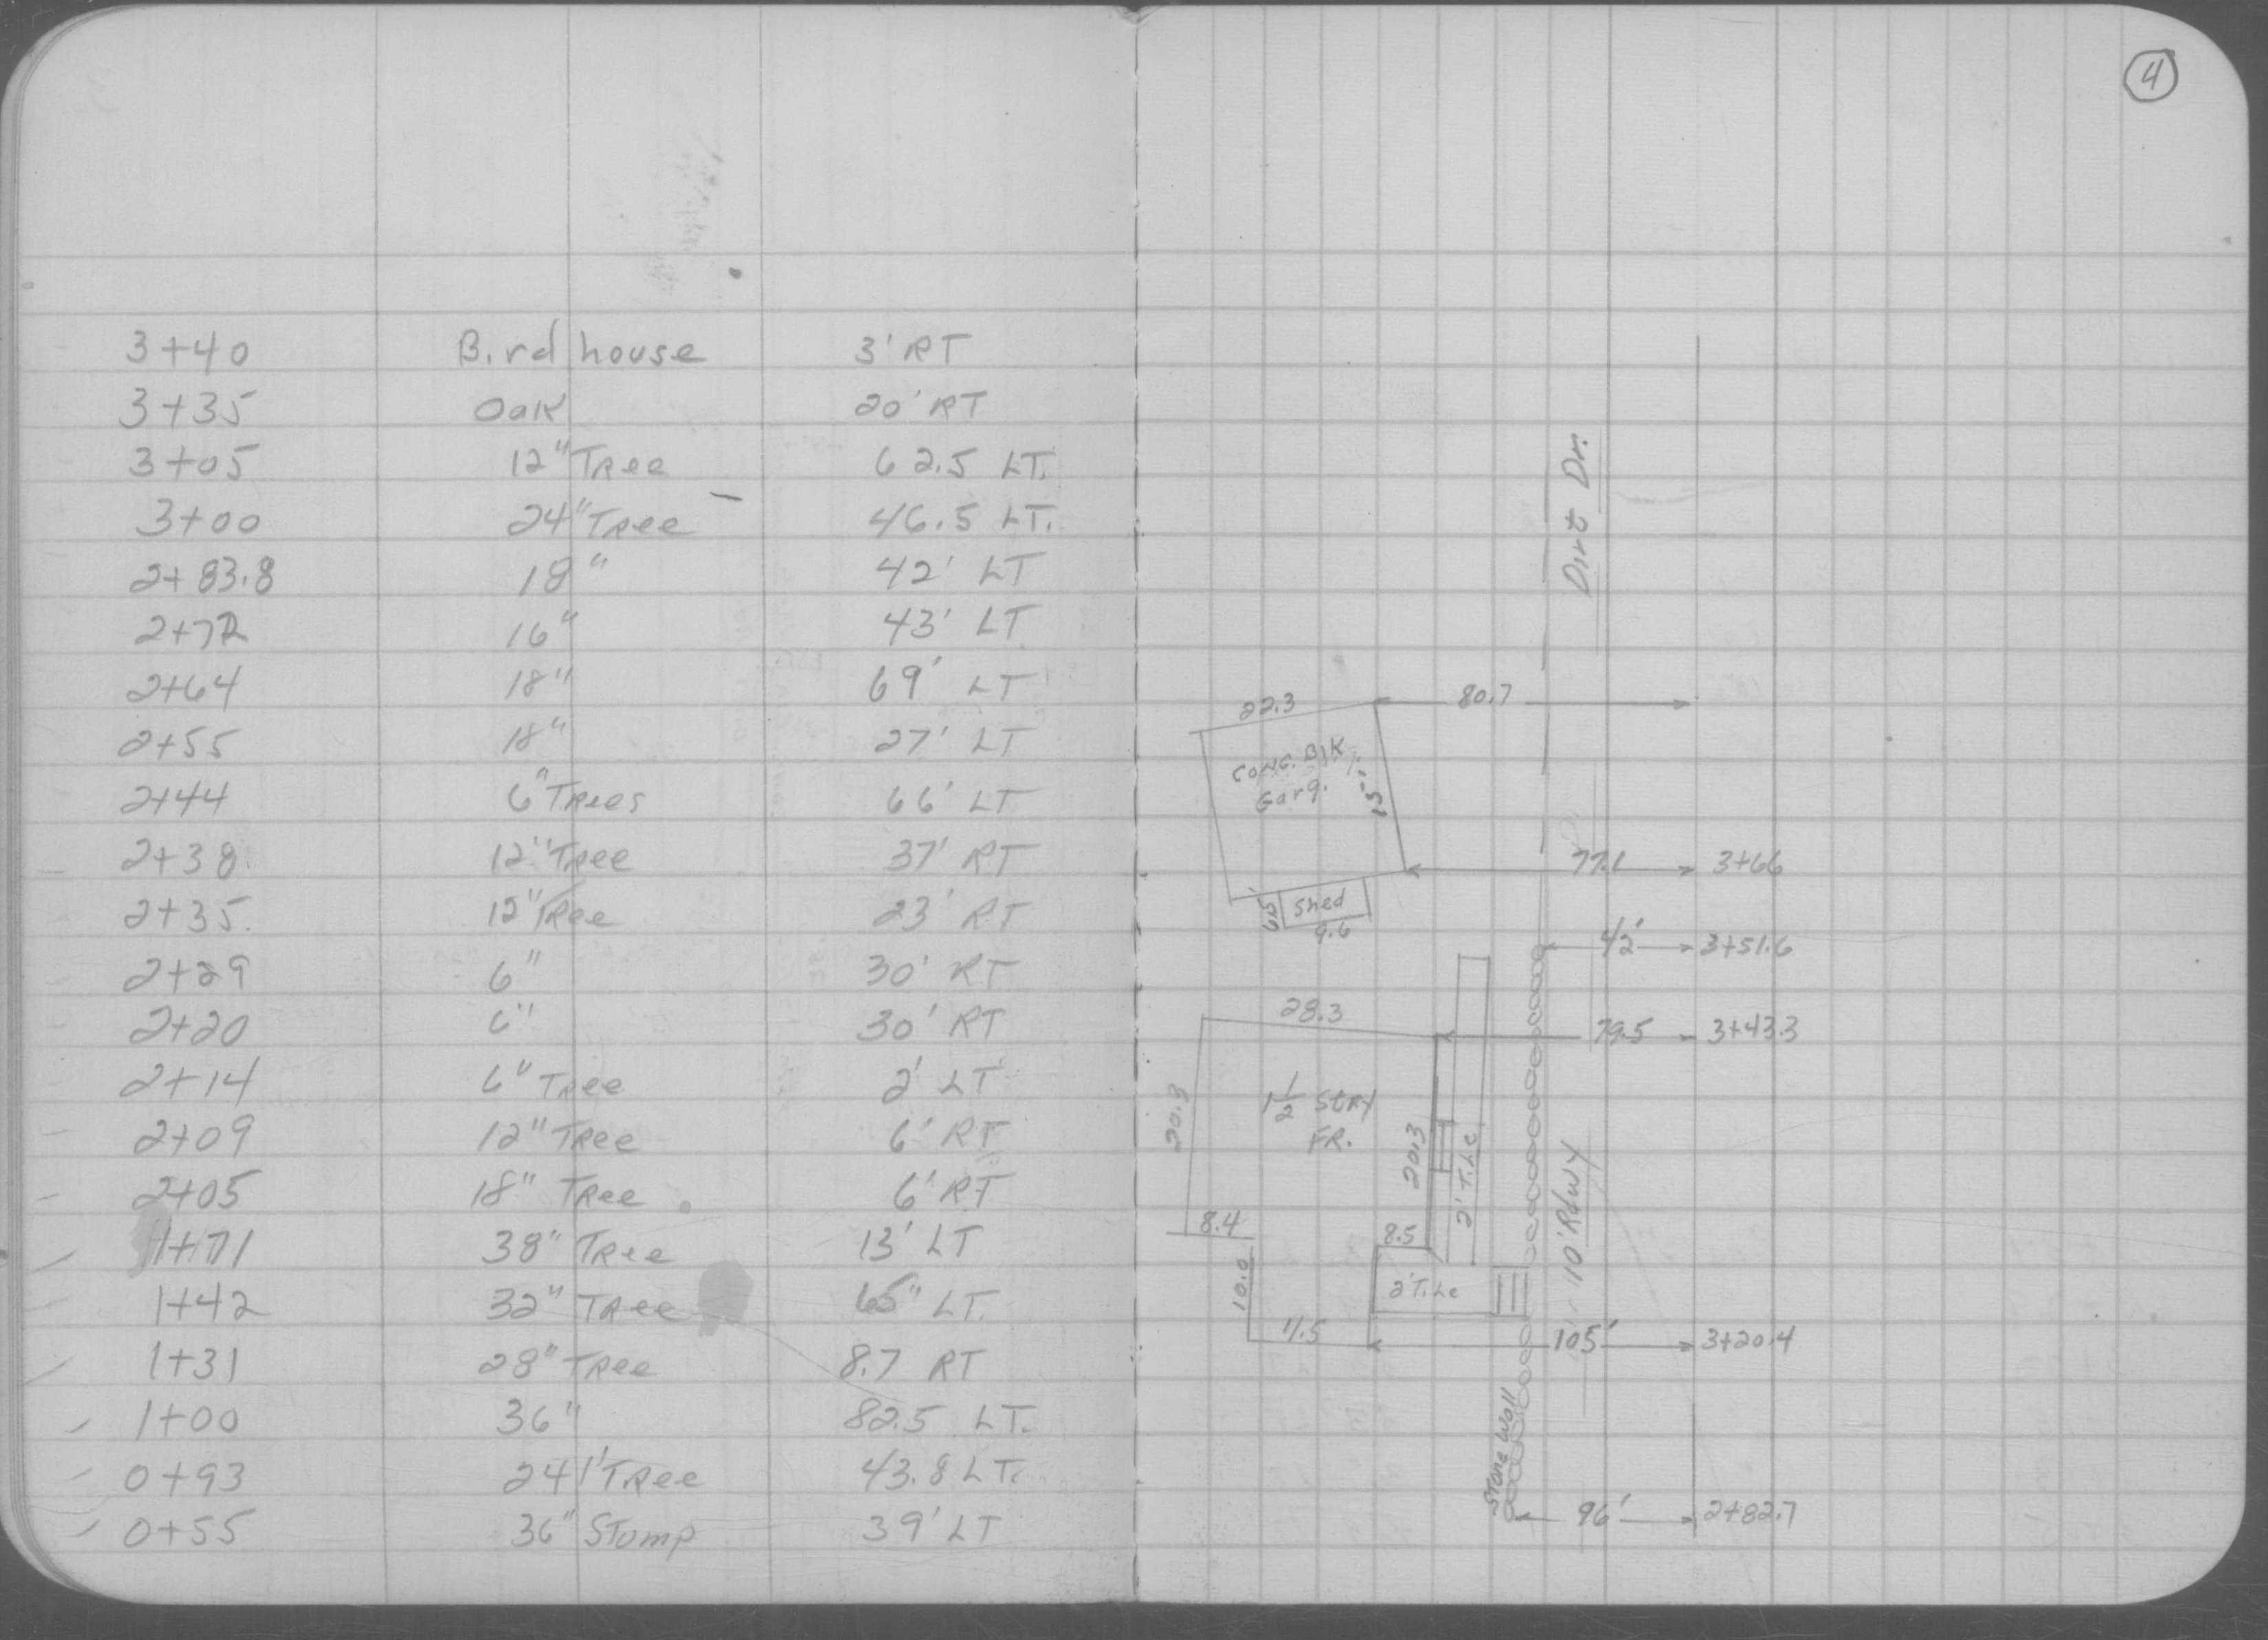 4
3+40 B.rd house 3' RT
3+35 Oak 20' RT
3+05 12" Tree 62.5 LT.
3+00 24" Tree 46.5 LT.
2+83.8 18" 42' LT
2+72 16" 43' LT
2+64 18" 69' LT
2+55 18" 27' LT
2+44 6" Trees 66' LT
2+38 12" Tree 37' RT
2+35. 12" Tree 23' RT
2+29 6" 30' RT
2+20 6" 30' RT
2+14 6" Tree 2' LT
2+09 12" Tree 6' RT
2+05 18" Tree 6' RT
1+71 38" Tree 13' LT
1+42 32" Tree LT.
1+31 28" Tree 8.7 RT
1+00 36" 82.5 LT.
0+93 24" Tree 43.8 LT.
0+55 36" Stump 39' LT
Dirt Dr.
22.3
80.7
CONC. Blk
Garg.
77.1 3+66
Shed
9.6
42' 3+51.6
28.3
79.5 3+43.3
20.3
1 1/2 Stry
FR.
20.3
2' Tile
10' R/WY
8.4
8.5
10.0
2' Tile
11.5
105' 3+20.4
Stone Wall
96' 2+82.7